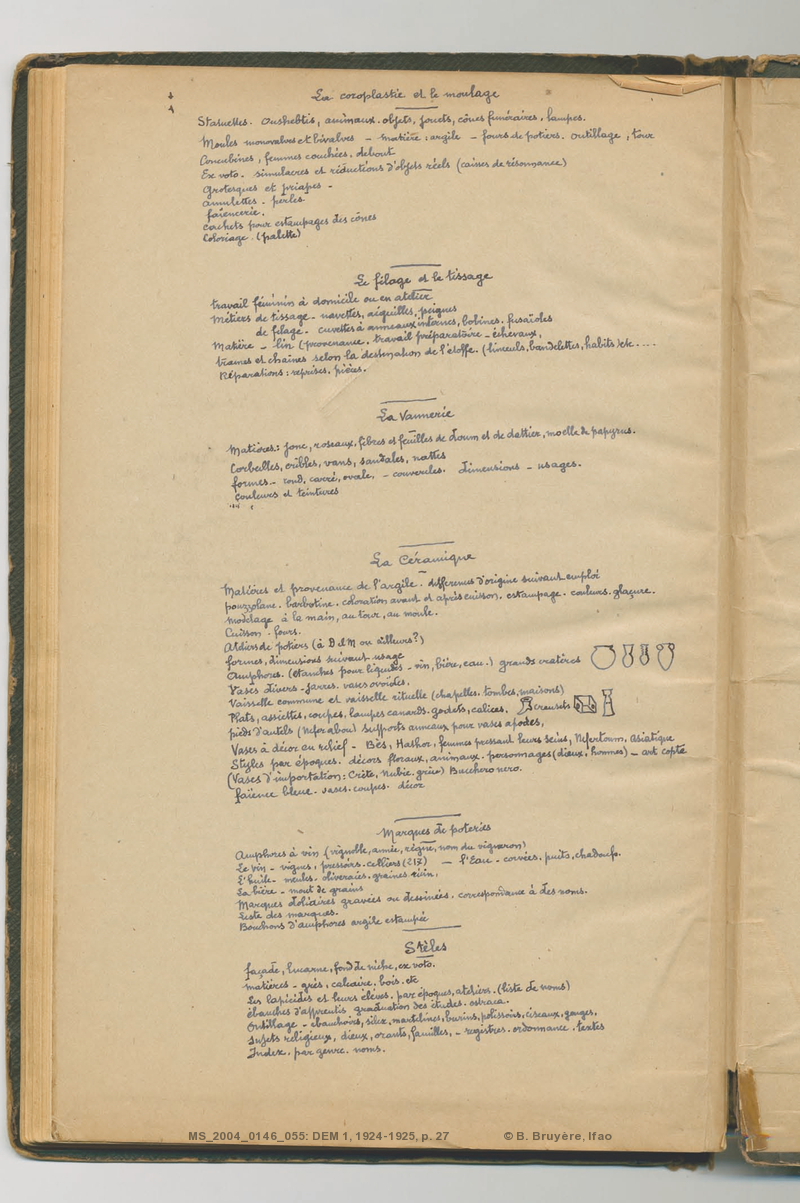 La coroplastie et le moulage
Statuettes. Oushebtis, animaux. objets, jouets, cônes funéraires, lampes.
Moules monovalves et bivalves – matière : argile – fours de potiers. outillage, tour
Concubines, femmes couchées, debout
Ex voto. simulacres et réductions d'objets réels (caisses de résonnance)
Grotesques et priapes –
amulettes. perles
faïencerie.
cachets pour estampages des cônes
Coloriage. (palette)
Le filage et le tissage
travail féminin à domicile ou en atelier
Métiers de tissage – navettes, aiguilles, peignes
de filage. cuvettes à anneaux internes, bobines. fusaïoles
Matière – lin (provenance. travail préparatoire – écheveaux,
trames et chaines selon la destination de l'étoffe. (linceuls, bandelettes, habits) etc....
Réparations : reprises. pièces.
La Vannerie
Matières : jonc, roseaux, fibres et feuilles de doum et de dattier, moelle de papyrus.
Corbeilles, cribles, vans, sandales, nattes
formes – rond, carré, ovale. – couvercles. dimensions – usages.
Couleurs et teintures
La Céramique
Matières et provenance de l'argile. différences d'origine suivant emploi
pouzzolane. barbotine. coloration avant et après cuisson. estampage. couleurs. glaçure.
modelage à la main, au tour, au moule.
Cuisson. fours.
Ateliers de potiers (à D el M ou ailleurs?)
formes, dimensions suivant usage
Amphores. (étanches pour liquides – vin, bière, eau.) grands cratères
Vases divers – jarres. vases ovoïdes.
Vaisselle commune et vaisselle rituelle (chapelles. tombes, maisons)
Plats, assiettes, coupes, lampes canards. godets, calices. creusets
pieds d'autels (Neferabou) supports anneaux pour vases apodes,
Vases à décor en relief – Bès, Hathor, femmes pressant leurs seins, Nefertoum, Asiatique
Styles par époques. décors floraux, animaux. personnages (dieux, hommes) – art copte
(Vases d'importation : Crète, Nubie, grèce) Bucchero nero.
faïence bleue. vases. coupes. décor
Marques de poteries
Amphores à vin (vignoble, année, règne, nom du vigneron)
Le vin – vignes, pressoirs. celliers (217) – l'Eau – corvées, puits, chadoufs.
L'huile – meules. oliveraies. graines ricin,
La bière – mout de grains
Marques doliaires gravées ou dessinées. correspondance à des noms.
Liste des marques.
Bouchons d'amphores argile estampée
Stèles
façade, lucarne, fond de niche, ex voto.
matières – grès, calcaire, bois. etc
Les lapicides et leurs élèves. par époques, ateliers. (liste de noms)
ébauches d'apprentis graduation des études. ostraca.
Outillage – ébauchoirs, silex, martelines, burins, polissoirs, ciseaux, gouges.
Sujets religieux, dieux, orants, familles, – registres. ordonnance. textes
Index. par genre. noms.
MS_2004_0146_055: DEM 1, 1924-1925, p. 27 © B. Bruyère, Ifao